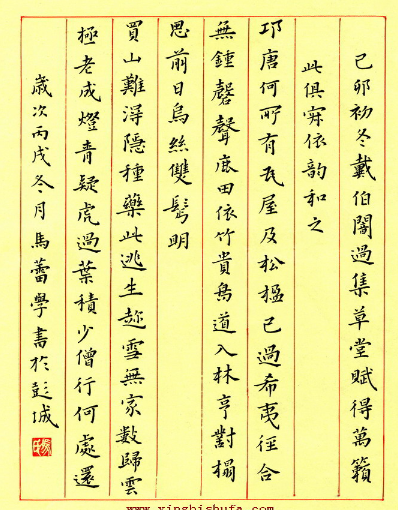 己卯初冬戴伯闇過集草堂賦得萬籟
此俱寂依韵和之
邛唐何所有瓦屋及松楹已過希夷徑合
無鍾磬聲鹿田依竹貴鳥道入林亨對榻
思前日烏絲雙髩明
買山難淂隱種藥此逃生趂雪無家數歸雲
極老成燈青疑虎過葉積少僧行何處還
歲次丙戌冬月馬蕾學書於彭城
www.xingbishufa.com